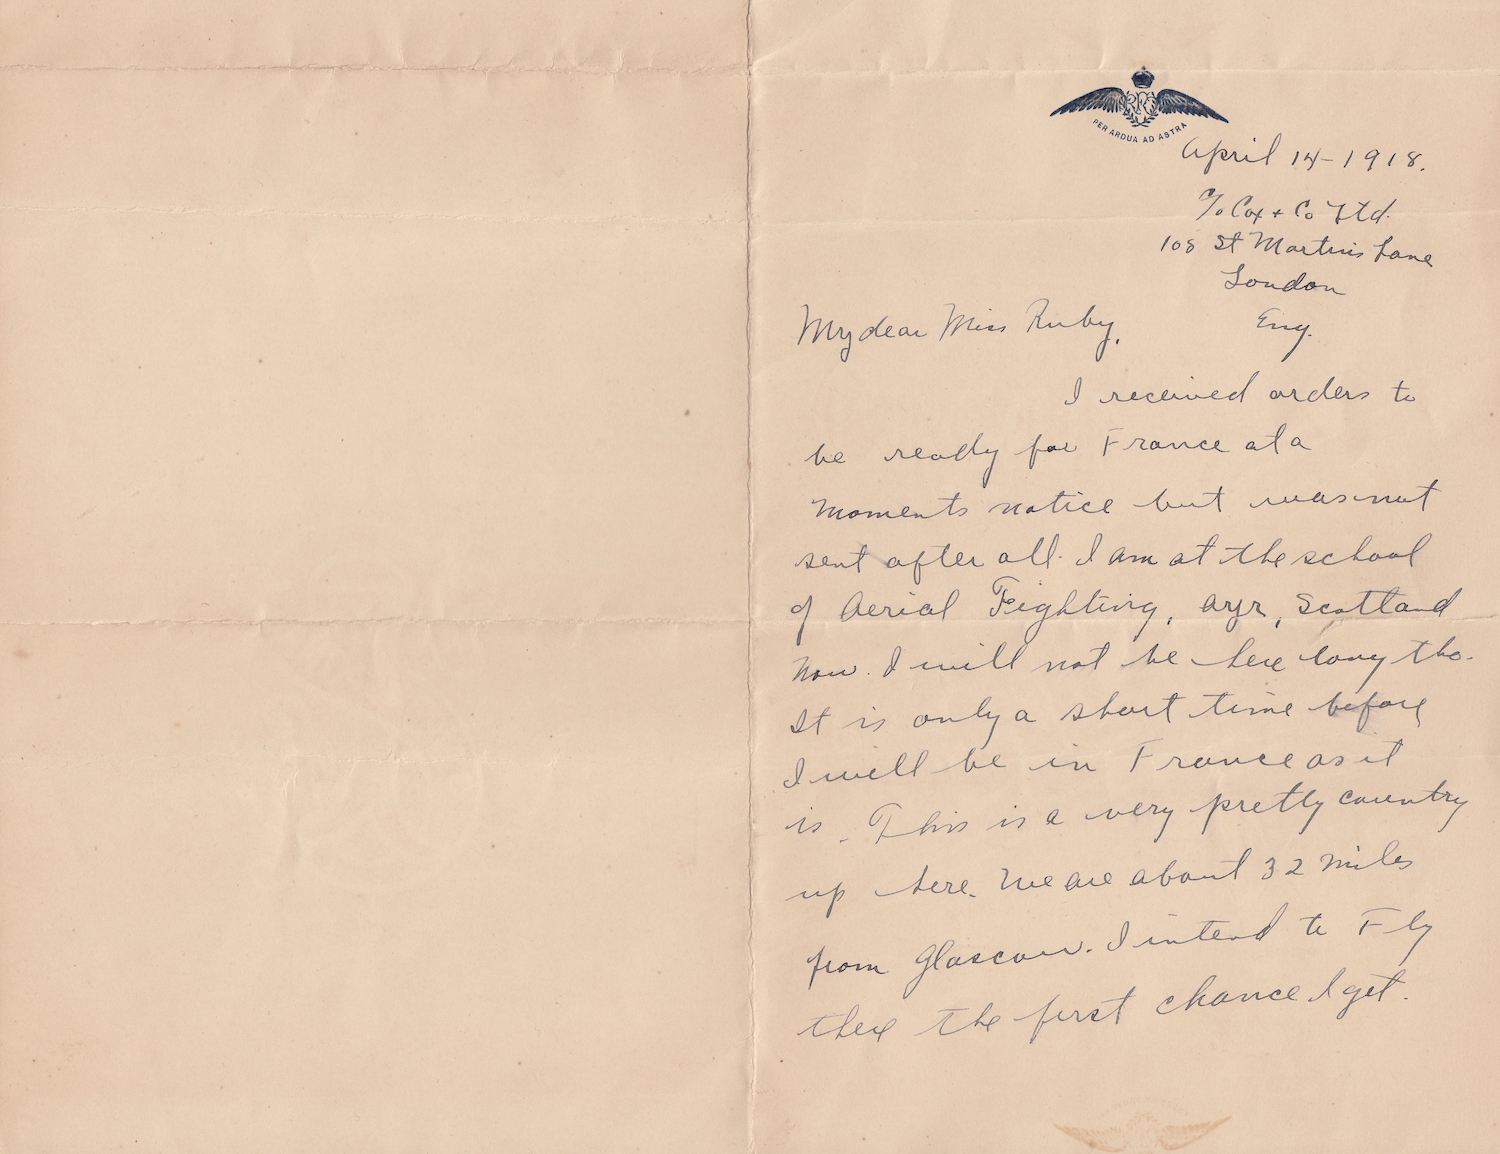 RFC
PER ARDUA AD ASTRA
April 14-1918.
c/o Cox + Co Ltd.
108 St Martins Lane
London
Eng.
My dear Miss Ruby,
I received orders to
be ready for France at a
moments notice but was not
sent after all. I am at the school
of Aerial Fighting, Ayr, Scotland
now. I will not be here long tho.
It is only a short time before
I will be in France as it
is. This is a very pretty country
up here. We are about 32 miles
from Glascow. I intend to Fly
there the first chance I get.